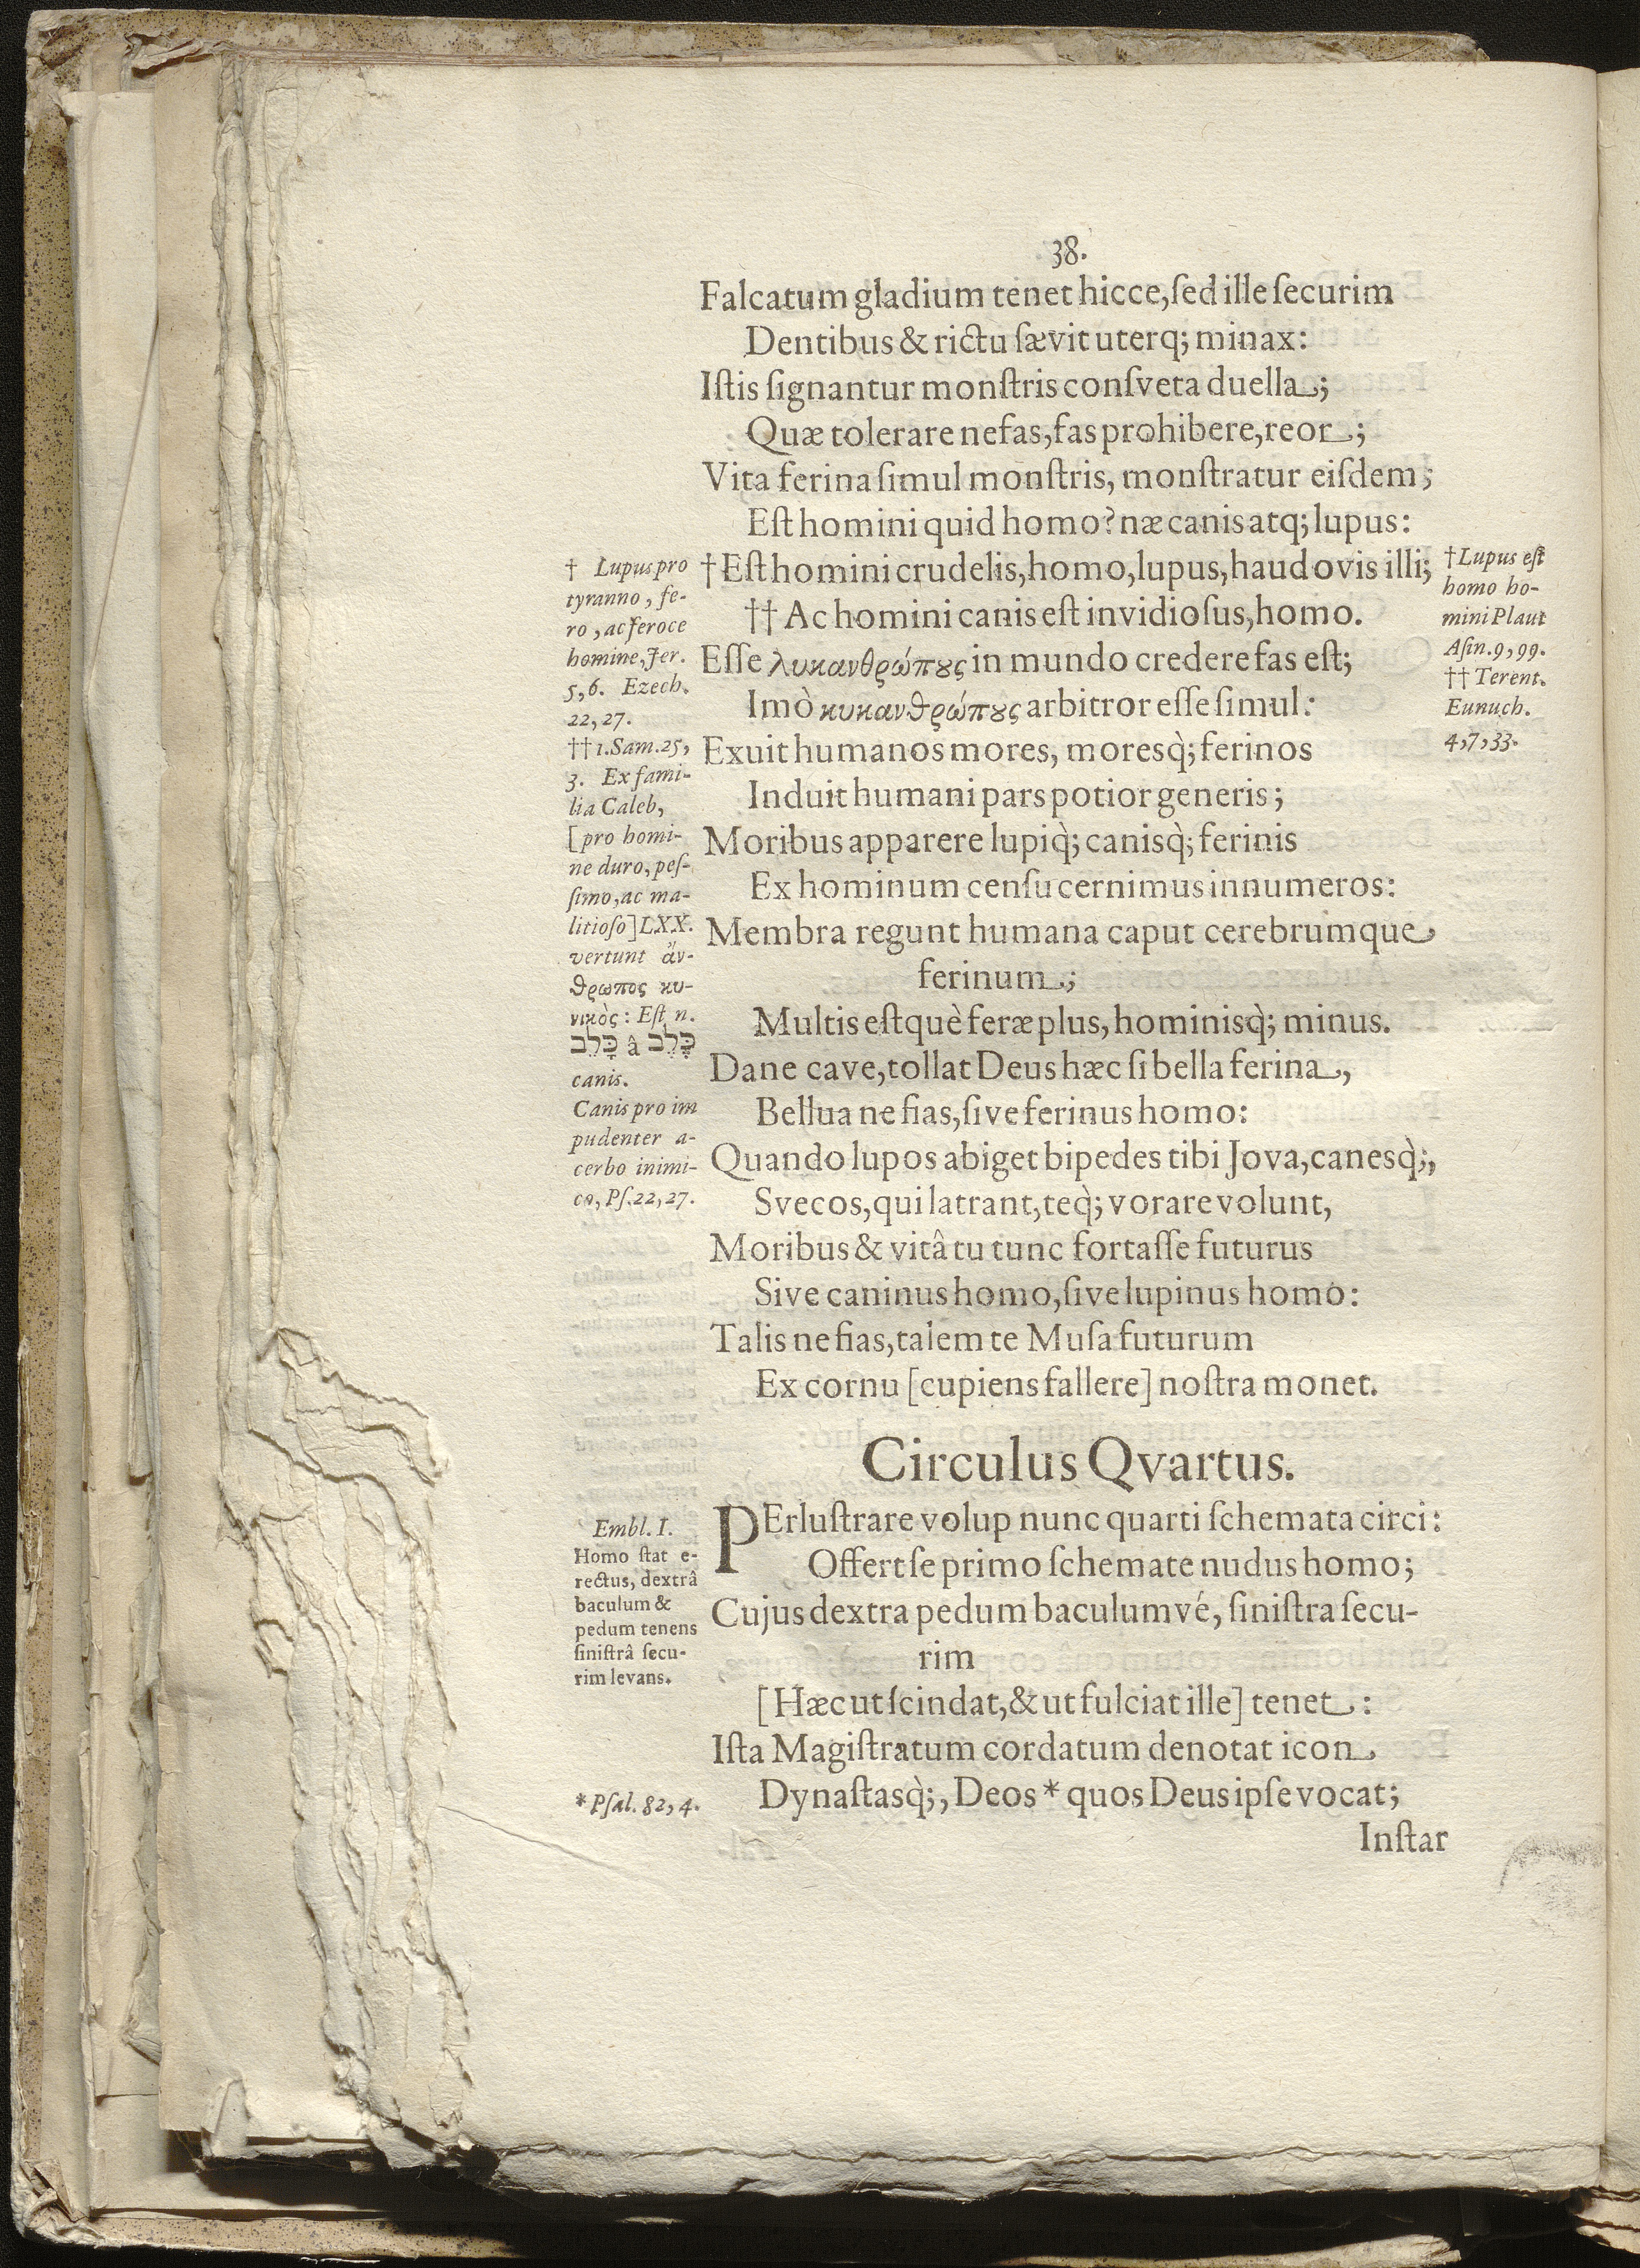 38.
Falcatum gladium tenet hicce, ſed ille ſecurim
Dentibus & rictu ſævit uterq; minax:
Iſtis ſignantur monſtris conſveta duella;
Quæ tolerare nefas, fas prohibere, reor;
Vita ferina ſimul monſtris, monſtratur eiſdem;
Eſt homini quid homo? næ canis atq; lupus:
†Eſt homini crudelis, homo, lupus, haud ovis illi;
†† Ac homini canis eſt invidioſus, homo.
Eſſe λυκανθρώπȣς in mundo credere fas eſt;
Imò κυκανθρώπȣς arbitror eſſe ſimul:
Exuit humanos mores, moresq̀; ferinos
Induit humani pars potior generis;
Moribus apparere lupiq̀; canisq̀; ferinis
Ex hominum cenſu cernimus innumeros:
Membra regunt humana caput cerebrumque
ferinum;
Multis eſtquè feræ plus, hominisq̀; minus.
Dane cave, tollat Deus hæc ſi bella ferina,
Bellua ne fias, ſive ferinus homo:
Quando lupos abiget bipedes tibi Jova, canesq̀;,
Svecos, qui latrant, teq̀; vorare volunt,
Moribus & vitâ tu tunc fortaſſe futurus
Sive caninus homo, ſive lupinus homo:
Talis ne fias, talem te Muſa futurum
Ex cornu [cupiens fallere] noſtra monet.
† Lupus pro
tyranno, fe-
ro, ac feroce
homine, Jer.
5, 6. Ezech.
22, 27.
†† 1. Sam. 25,
3. Ex fami-
lia Caleb,
[pro homi-
ne duro, peſ-
ſimo, ac ma-
litioſo] LXX.
vertunt ἄν-
θρωπος κυ-
νικὸς: Eſt n.
כָּלֵב â כֶּלֶב
canis.
Canis pro im
pudenter a-
cerbo inimi-
co, Pſ. 22, 27.
† Lupus eſt
homo ho-
mini Plaut
Aſin. 9, 99.
†† Terent.
Eunuch.
4, 7, 33.
Circulus Qvartus.
PErluſtrare volup nunc quarti ſchemata circi:
Offert ſe primo ſchemate nudus homo;
Cujus dextra pedum baculumvé, ſiniſtra ſecu-
rim
[Hæc ut ſcindat, & ut fulciat ille] tenet:
Iſta Magiſtratum cordatum denotat icon
Dynaſtasq̀;, Deos * quos Deus ipſe vocat;
Embl. I.
Homo ſtat e-
rectus, dextrâ
baculum &
pedum tenens
ſiniſtrâ ſecu-
rim levans.
* Pſal. 82, 4.
Inſtar